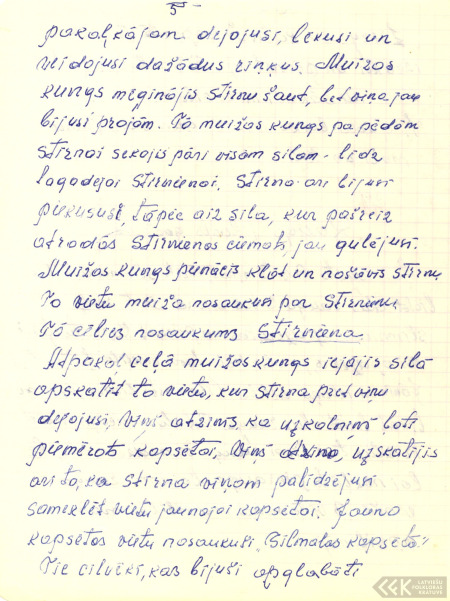 5
pakaļkājām dejojusi, lekusi un
veidojusi dažādus riņķus. Muižas
kungs mēģinājis stirnu šaut, bet viņa jau
bijusi projām. Tā muižas kungs pa pēdām
stirnai sekojis pāri visam silam - līdz
tagadējai Stirnienai. Stirna arī bijusi
piekususi, tāpēc aiz sila, kur pašreiz
atrodas Stirnienas ciemats jau gulējusi.
Muižas kungs pienācis klāt un nošāvis stirnu.
To vietu muiža nosaukusi par Stirnienu.
Tā cēlies nosaukums Stirniena.
Atpakaļ ceļā muižas kungs iejājis silā
apskatīt to vietu, kur stirna pret viņu
dejojusi, viņš atzinis, ka uzkalniņš ļoti
piemērots kapsētai, viņš uzskatījis
arī to, ka stirna viņam palīdzējusi
sameklēt vietu jaunajai kapsētai. Jauno
kapsētas vietu nosaukuši „Silmalas kapsēta."
Tie cilvēki, kas bijuši apglabāti
LATVIEŠU
FOLKLORAS
KRĀTUVE